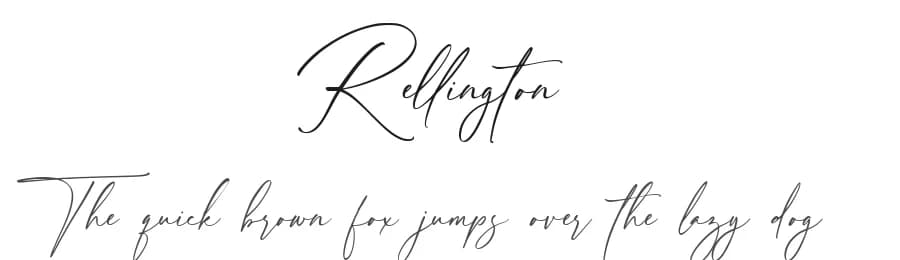 Rellington
The quick brown fox jumps over the lazy dog